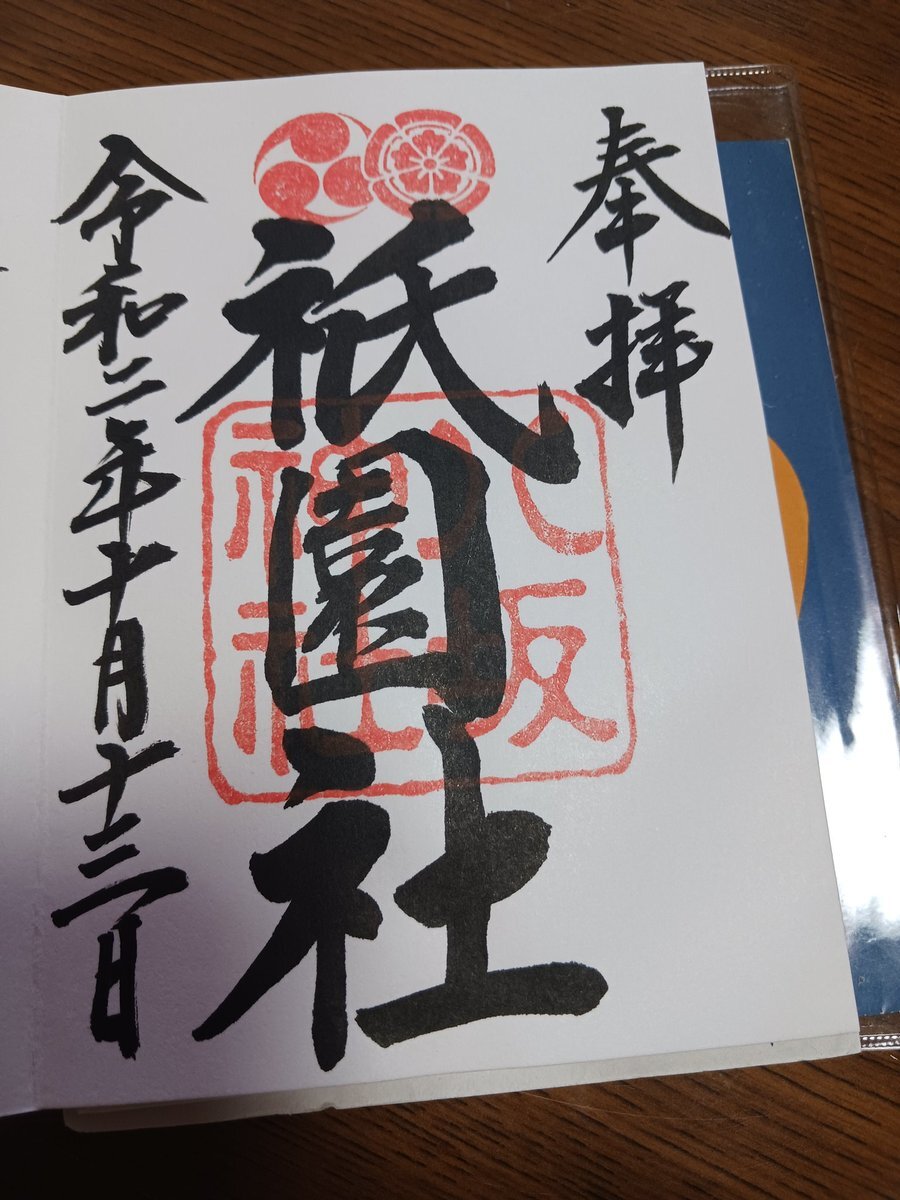 奉拝
祇園社
八坂
神社
令和二年十月十三日